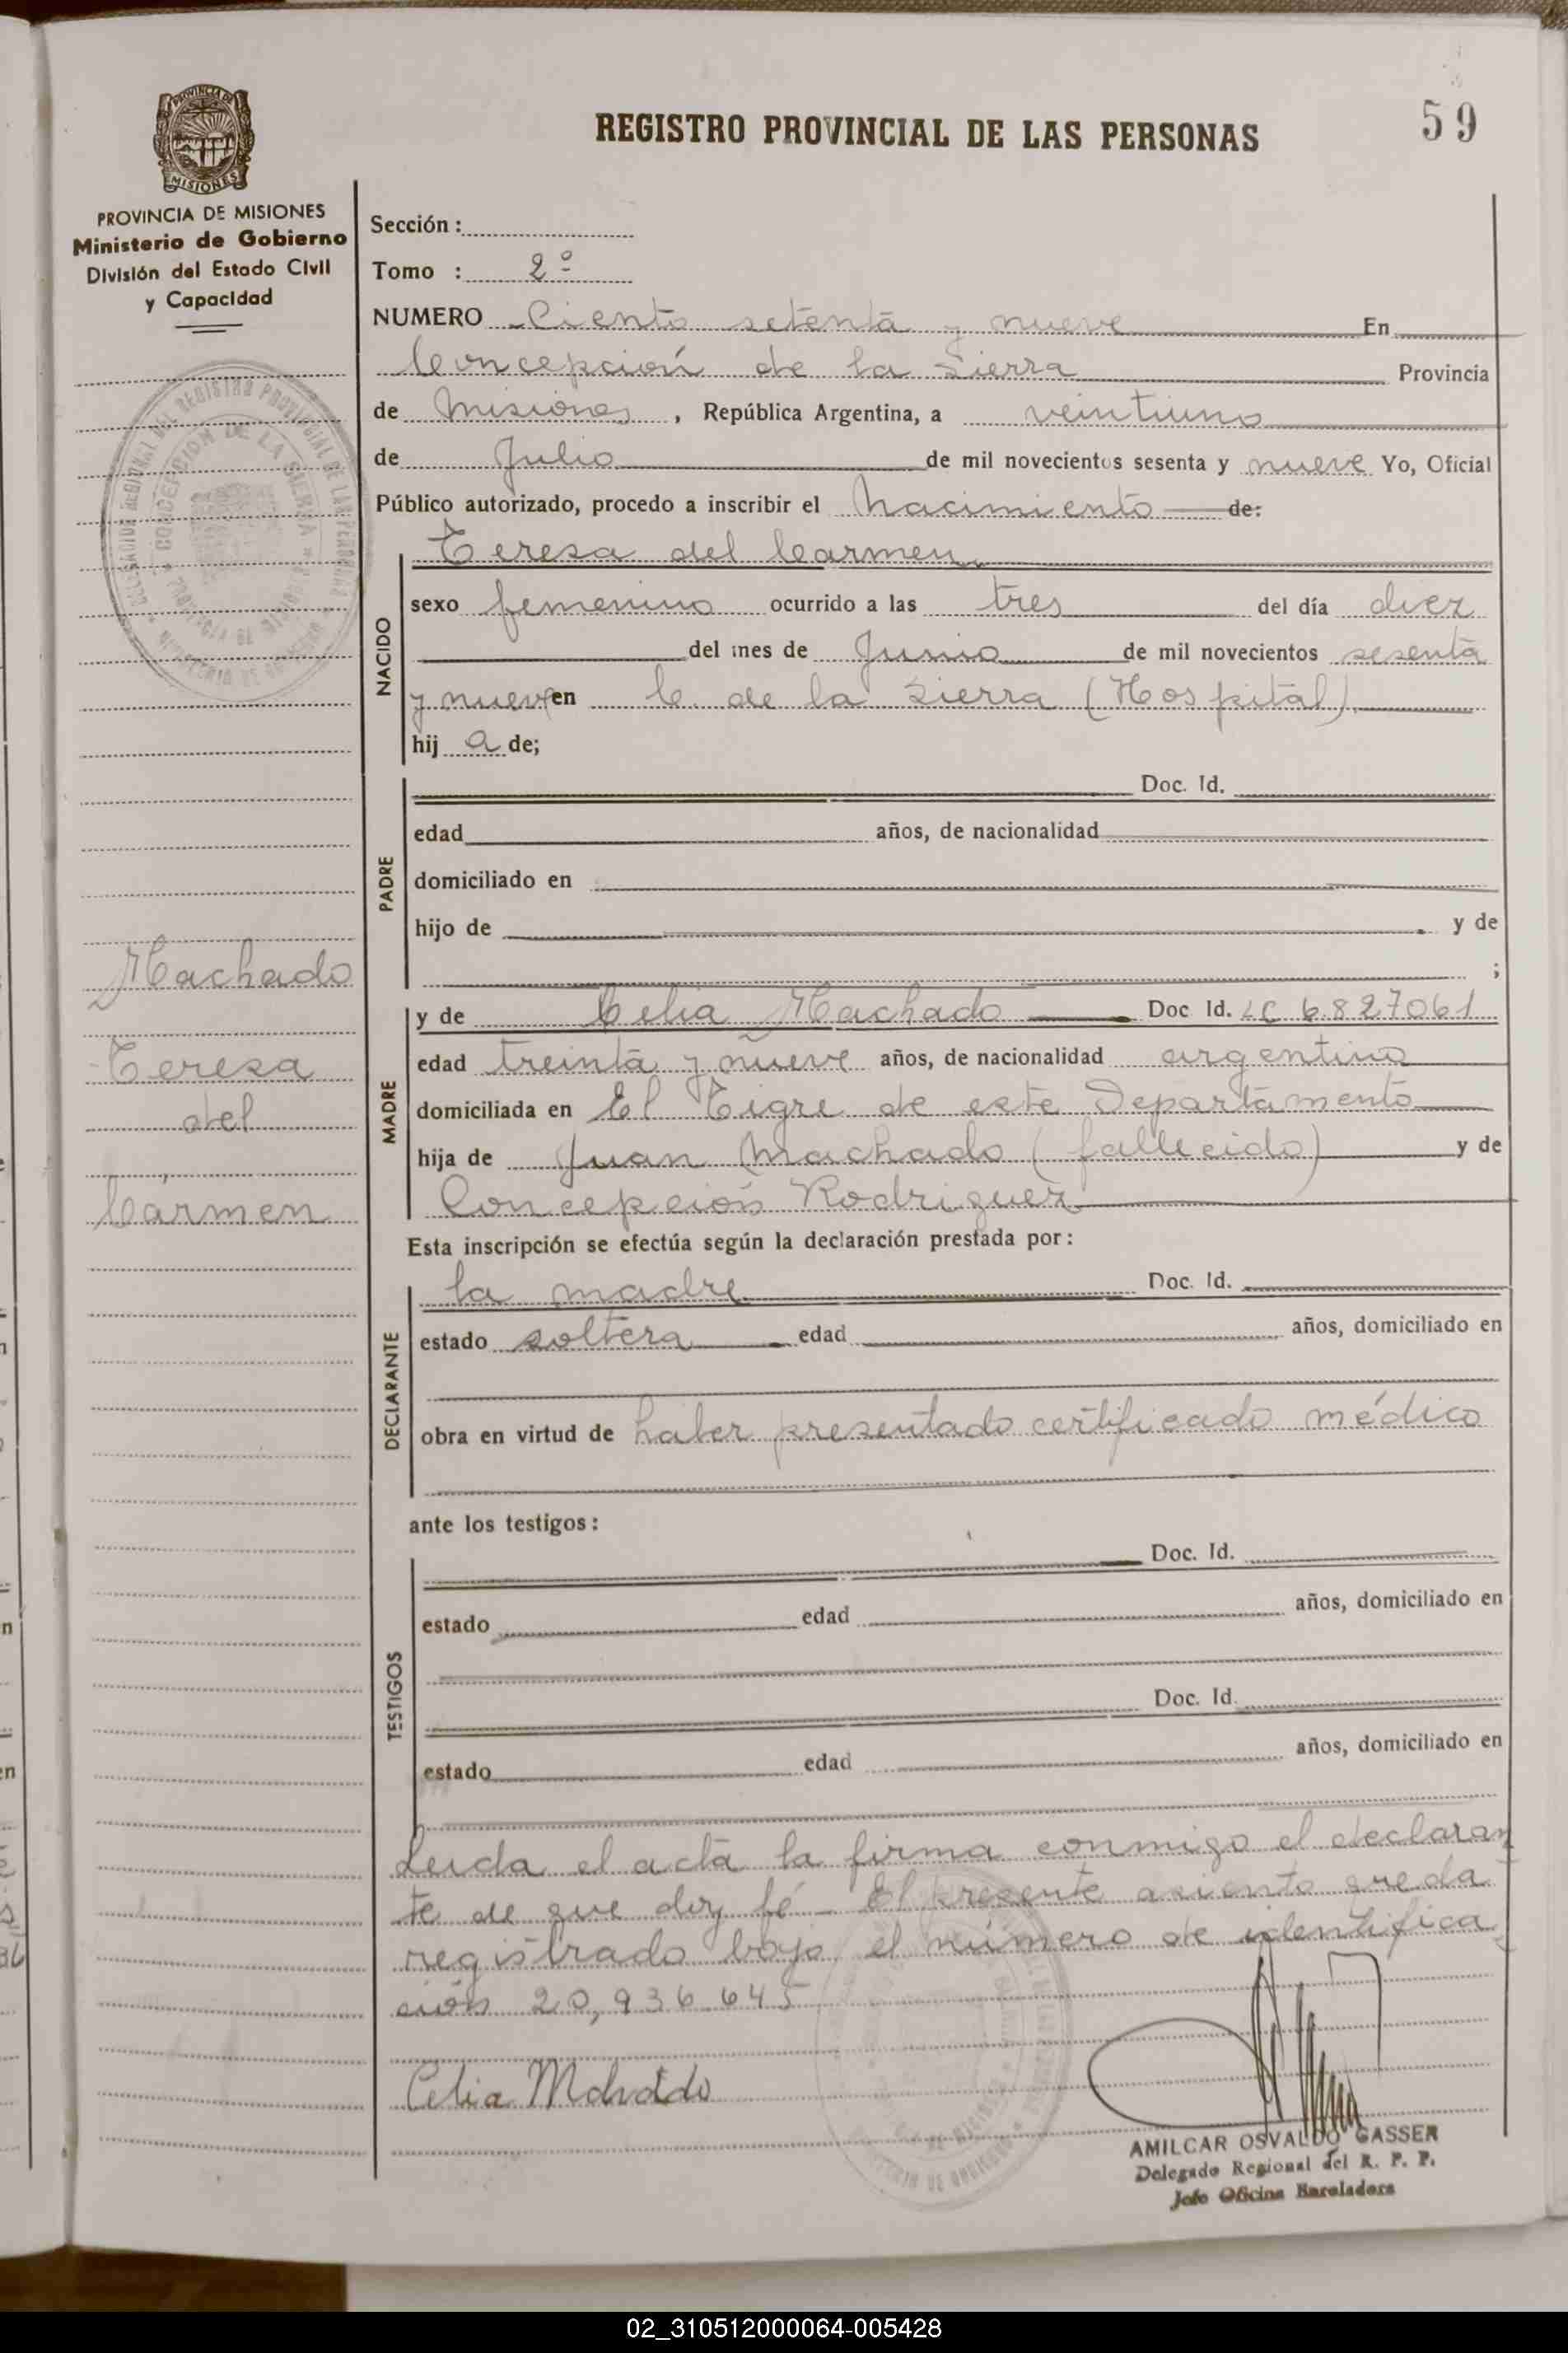 REGISTRO PROVINCIAL DE LAS PERSONAS
59
PROVINCIA DE MISIONES
PROVINCIA DE MISIONES
Ministerio de Gobierno
División del Estado Civil
y Capacidad
Sección :
Tomo : 2º
NUMERO Ciento setenta y nueve En
Concepción de la Sierra Provincia
de Misiones, República Argentina, a veintiuno
de Julio de mil novecientos sesenta y nueve Yo, Oficial
Público autorizado, procedo a inscribir el Nacimiento de:
NACIDO
Teresa del Carmen
sexo femenino ocurrido a las tres del día diez
del mes de Junio de mil novecientos sesenta
y nueve en C. de la Sierra (Hospital)
hij a de;
PADRE
Doc. Id.
edad años, de nacionalidad
domiciliado en
hijo de y de
;
Machado
Teresa
del
Carmen
MADRE
y de Celia Machado Doc Id. LC 6.827061
edad treinta y nueve años, de nacionalidad argentina
domiciliada en El Tigre de este Departamento
hija de Juan Machado (fallecido) y de
Concepción Rodriguez
Esta inscripción se efectúa según la declaración prestada por:
DECLARANTE
la madre Doc. Id.
estado soltera edad años, domiciliado en
obra en virtud de haber presentado certificado médico
ante los testigos:
TESTIGOS
Doc. Id.
estado edad años, domiciliado en
Doc. Id.
estado edad años, domiciliado en
Leida el acta la firma conmigo el declaran
te de que doy fé - El presente asiento queda
registrado bajo el número de identifica
ción 20,936.645
Celia Machado
AMILCAR OSVALDO GASSER
Delegado Regional del R. P. P.
Jefe Oficina Enroladora
02_310512000064-005428